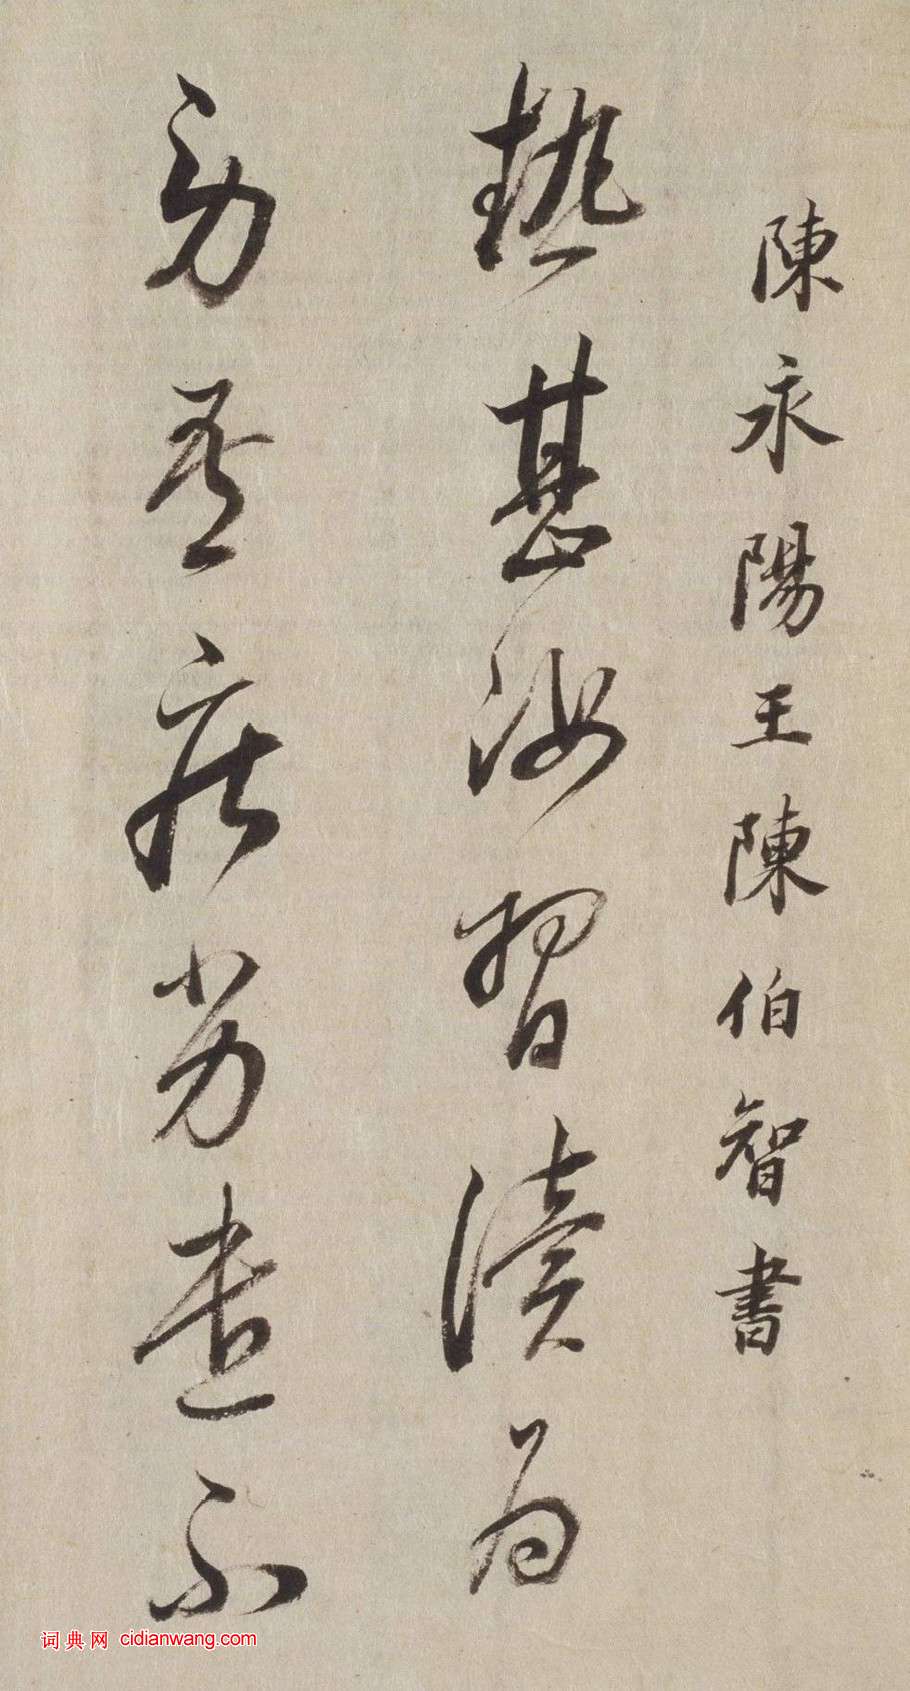 陳永陽王陳伯智書
熱甚汝習讀為
勞吾疾劣遣不
词典网 cidianwang.com